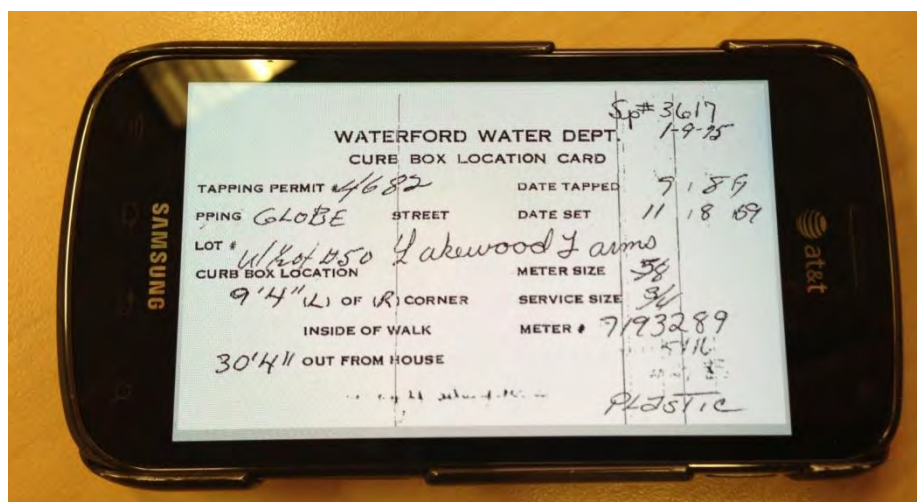 Sp# 3617
1-9-75
WATERFORD WATER DEPT.
CURB BOX LOCATION CARD
TAPPING PERMIT # 4682 DATE TAPPED 9 18 59
PPING GLOBE STREET DATE SET 11 18 59
LOT # W½ of #50 Lakewood Farms
CURB BOX LOCATION METER SIZE 5/8
9'4" (L) OF (R) CORNER SERVICE SIZE 3/4
INSIDE OF WALK METER # 7193289
30'4" OUT FROM HOUSE
PLASTIC
SAMSUNG
at&t